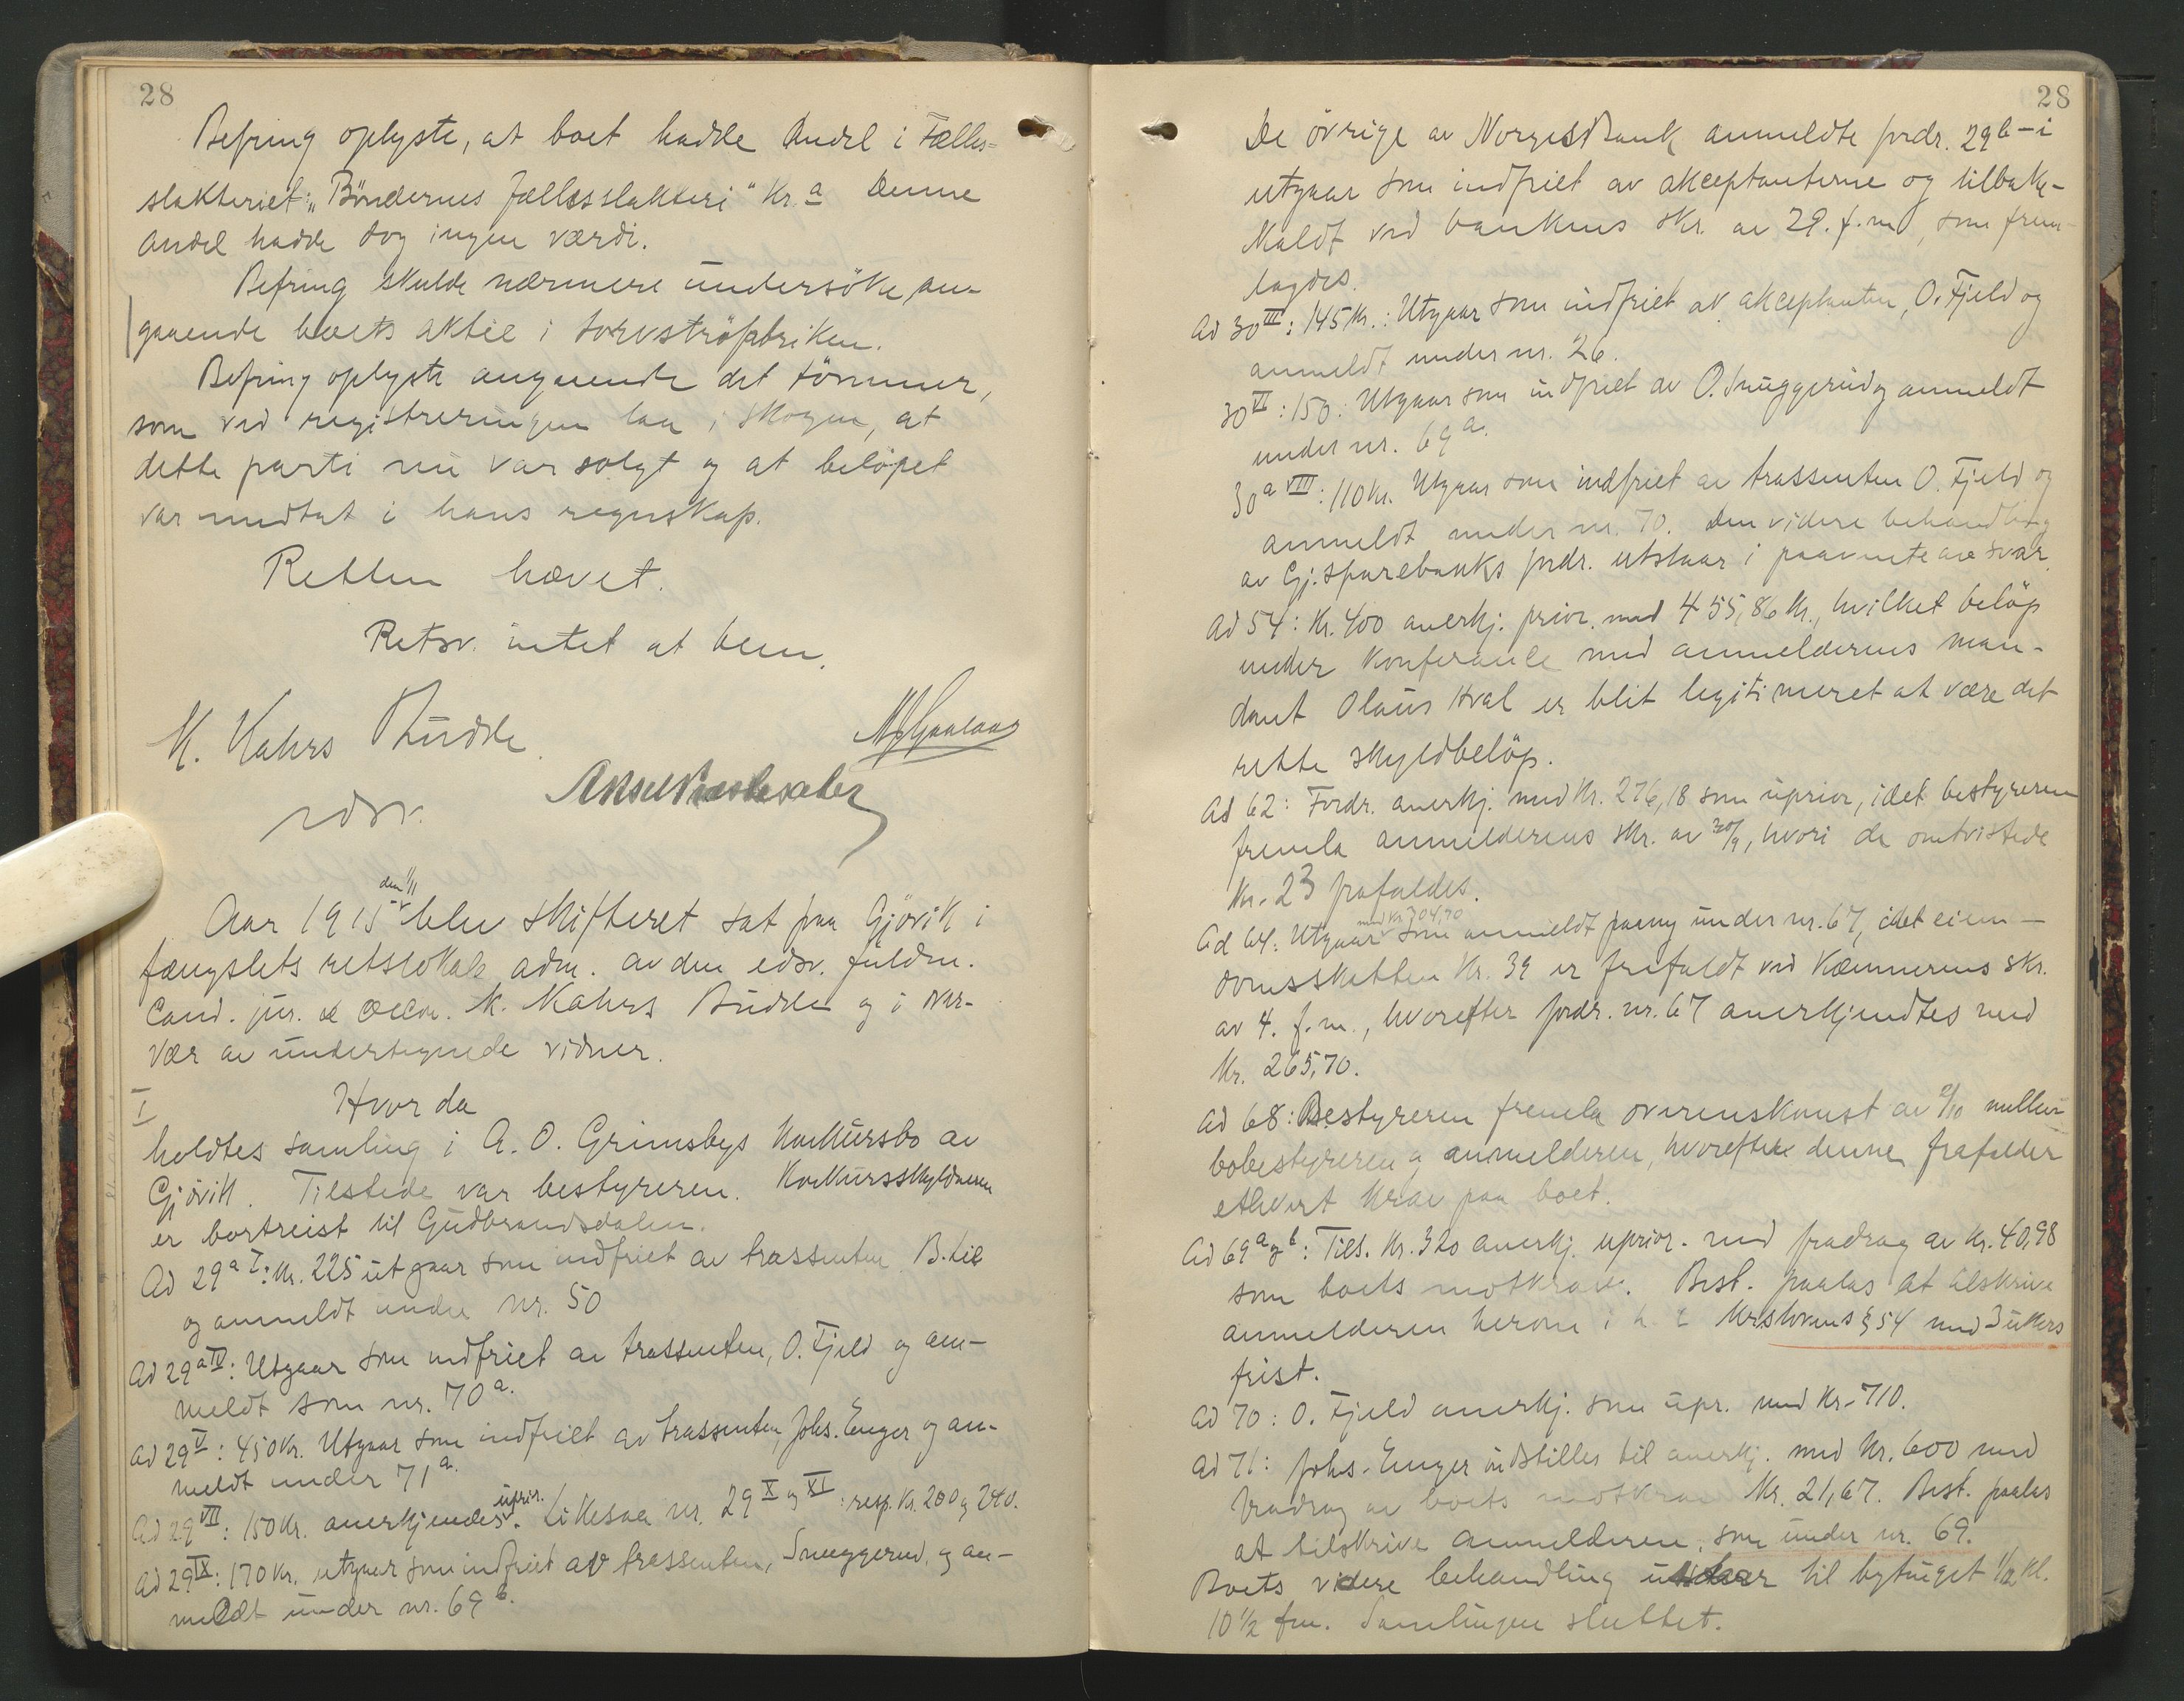 28
Befring oplyste, at boet hadde Andel i Fælles-
slakteriet: "Bøndernes fællesslakteri" Kr.a Denne
andel hadde dog ingen værdi.
Befring skulde nærmere undersöke an-
gaaende boets aktie i torvströfabriken.
Befring oplyste angaaende det tömmer,
som ved registreringen laa i skogen, at
dette parti nu var solgt og at belöpet
var medtat i hans regnskap.
Retten hævet.
Retsv. intet at bem.
K. Kahrs Budde
edsv.
Aar 1915 den 1/11 blev skifteret sat paa Gjövik i
fængslets retslokale adm. av den edsv. fuldm.
Cand. jur. & oecon. K. Kahrs Budde og i over-
vær av undertegnede vidner.
I
Hvorda
holdtes samling i A. O. Grimsbys konkursbo av
Gjövik. Tilstede var bestyreren. Konkursskyldneren
er bortreist til Gudbrandsdalen.
Ad 29 a I: Kr. 225 utgaar som indfriet av trassenten B.
og anmeldt under nr. 50
Ad 29 a IV: Utgaar som indfriet av trassenten, O. Fjeld og an-
meldt som nr. 70 a.
Ad 29 V: 450 Kr. Utgaar som indfriet av trassenten, Johs. Enger og an-
meldt under 71 a.
Ad 29 VII: 150 Kr. anerkjendes uprior. Likesaa nr. 29 X og XI: resp. Kr. 200 og 240.
Ad 29 IX: 170 Kr. utgaar som indfriet av trassenten, Snuggerud, og an-
meldt under nr. 69 b.
28
De övrige av Norges Bank anmeldte fordr. 29 b-i
utgaar som indfriet av akceptanterne og tilbake-
kaldt ved bankens skr. av 29. f.m., som frem-
lagdes.
Ad 30 III: 145 Kr.: Utgaar som indfriet av akceptanten, O. Fjeld og
anmeldt under nr. 26.
30 VI: 150: Utgaar som indfriet av O. Snuggerud og anmeldt
under nr. 69 a.
30 a VIII: 110 Kr. Utgaar som indfriet av trassenten O. Fjeld og
anmeldt under nr. 70. Den videre behandling
av Gj. sparebanks fordr. utstaar i paavente av svar.
Ad 54: Kr. 400 anerkj. prior. med 455,86 Kr., hvilket belöp
under konferanse med anmelderens man-
dant Olaus Hval er blit legitimeret at være det
rette skyldbelöp.
Ad 62: Fordr. anerkj. med Kr. 276,18 som uprior, idet bestyreren
fremla anmelderens skr. av 30/9, hvori de omtvistede
Kr. 23 frafaldes.
Ad 64: Utgaar med Kr. 304,70 som anmeldt paany under nr. 67, idet eien-
domsskatten Kr. 39 er frafaldt ved Kæmnerens skr.
av 4. f.m., hvorefter fordr. nr. 67 anerkjendtes med
Kr. 265,70.
Ad 68: Bestyreren fremla overenskomst av 2/10 mellem
bobestyreren og anmelderen, hvorefter denne frafalder
ethvert krav paa boet.
Ad 69 a og b: Tils. Kr. 320 anerkj. uprior. med fradrag av Kr. 40,98
som boets motkrav. Best. paalas at tilskrive
anmelderen herom i h. t. Krslovens § 54 med 3 ukers
frist.
Ad 70: O. Fjeld anerkj. som upr. med Kr. 710.
Ad 71: Johs. Enger indstilles til anerkj. med Kr. 600 med
fradrag av boets motkrav Kr. 21,67. Best. paalas
at tilskrive anmelderen, som under nr. 69.
Boets videre behandling utstaar til bytinget Kl.
10 1/2 fm. Samlingen sluttet.